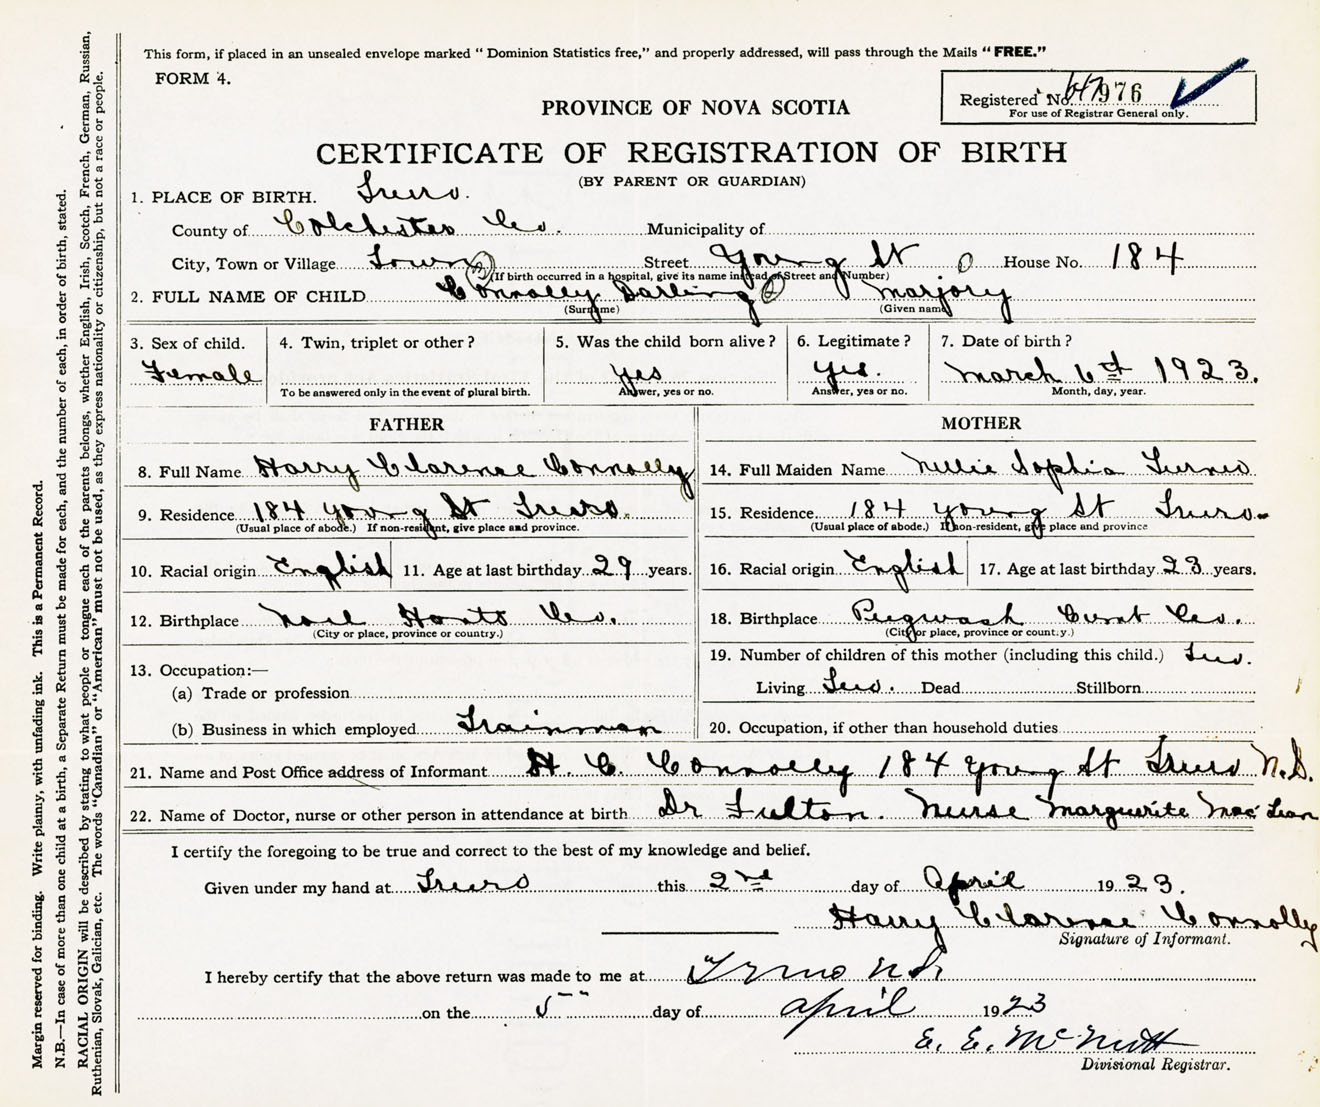 This form, if placed in an unsealed envelope marked "Dominion Statistics free," and properly addressed, will pass through the Mails "FREE."
FORM 4.
Registered No. 647976
For use of Registrar General only.
PROVINCE OF NOVA SCOTIA
CERTIFICATE OF REGISTRATION OF BIRTH
(BY PARENT OR GUARDIAN)
1. PLACE OF BIRTH. Truro.
County of Colchester Co. Municipality of
City, Town or Village Town Street Young St House No. 184
(If birth occurred in a hospital, give its name instead of Street and Number)
2. FULL NAME OF CHILD Connolly Darling Marjory
(Surname) (Given name)
3. Sex of child. 4. Twin, triplet or other? 5. Was the child born alive? 6. Legitimate? 7. Date of birth?
Female yes yes. March 6th 1923.
To be answered only in the event of plural birth. Answer, yes or no. Answer, yes or no. Month, day, year.
FATHER MOTHER
8. Full Name Harry Clarence Connolly 14. Full Maiden Name Nellie Sophia Turner
9. Residence 184 Young St Truro. 15. Residence 184 Young St Truro.
(Usual place of abode.) If non-resident, give place and province. (Usual place of abode.) If non-resident, give place and province
10. Racial origin English 11. Age at last birthday 29 years. 16. Racial origin English 17. Age at last birthday 23 years.
12. Birthplace Noel Hants Co. 18. Birthplace Pugwash Cumt Co.
(City or place, province or country.) (City or place, province or county.)
19. Number of children of this mother (including this child.) Two.
13. Occupation:—
(a) Trade or profession Living Two. Dead Stillborn
(b) Business in which employed Trainman 20. Occupation, if other than household duties
21. Name and Post Office address of Informant H. C. Connolly 184 Young St Truro N.S.
22. Name of Doctor, nurse or other person in attendance at birth Dr Fulton. Nurse Marguerite MacLean
I certify the foregoing to be true and correct to the best of my knowledge and belief.
Given under my hand at Truro this 2nd day of April 1923.
Harry Clarence Connolly
Signature of Informant.
I hereby certify that the above return was made to me at Truro N.S.
on the 5 day of April 1923
E. E. McNutt
Divisional Registrar.
Margin reserved for binding. Write plainly, with unfading ink. This is a Permanent Record.
N.B.—In case of more than one child at a birth, a Separate Return must be made for each, and the number of each, in order of birth, stated.
RACIAL ORIGIN will be described by stating to what people or tongue each of the parents belongs, whether English, Irish, Scotch, French, German, Russian,
Ruthenian, Slovak, Galician, etc. The words "Canadian" or "American" must not be used, as they express nationality or citizenship, but not a race or people.